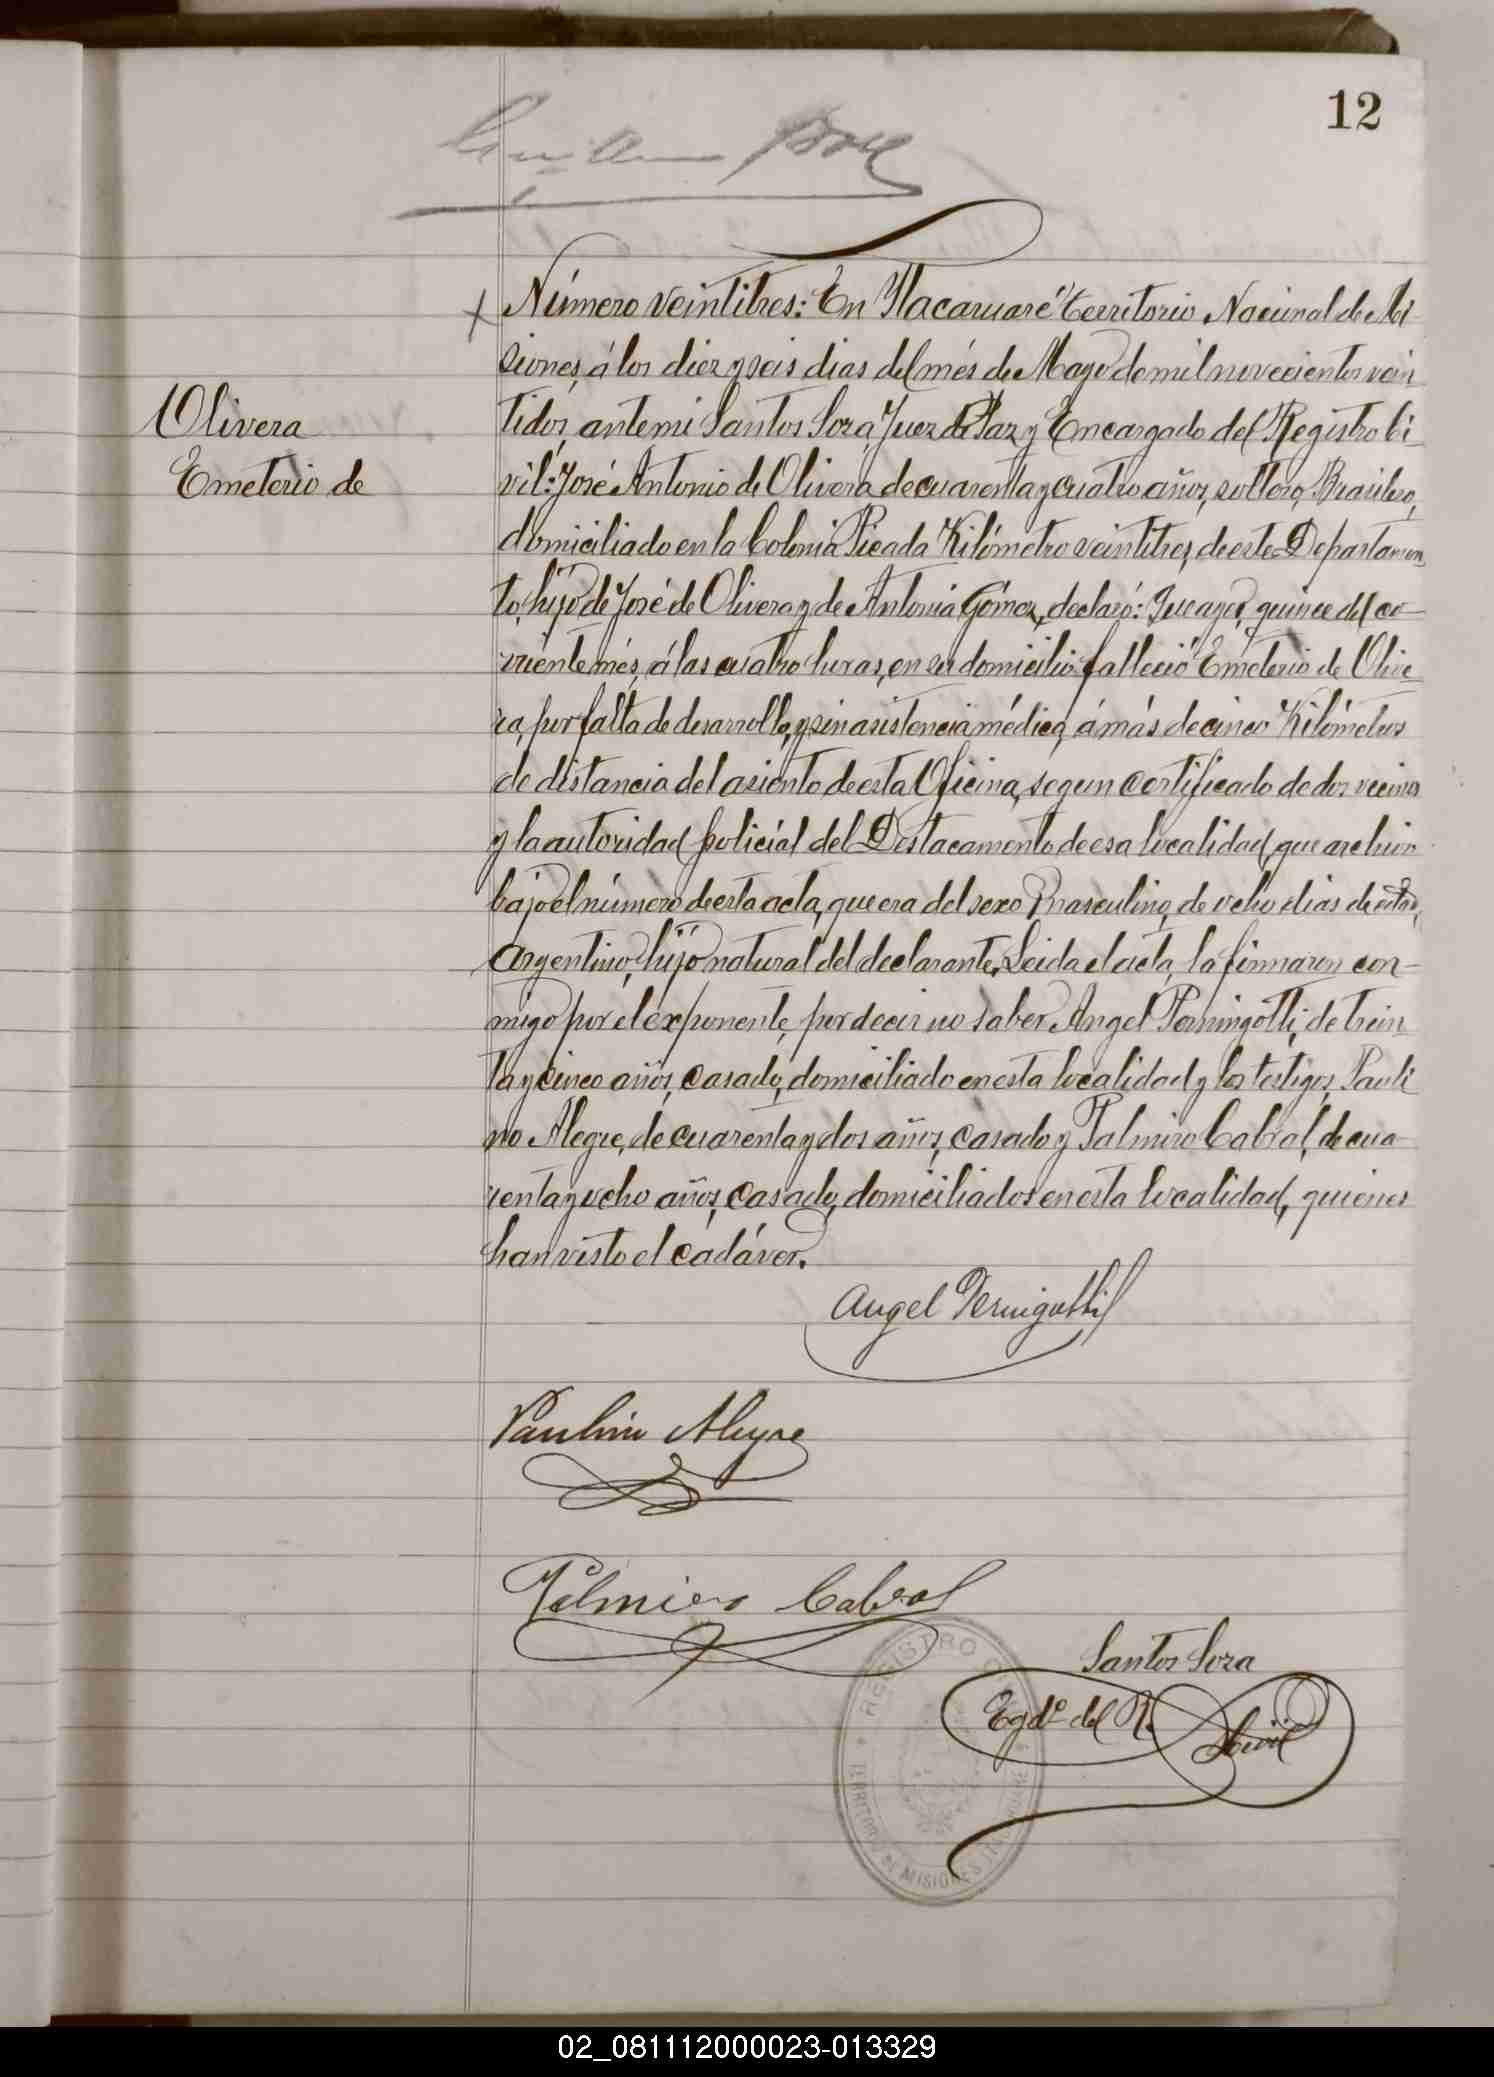 12
Número veintitres: En Itacaruaré territorio Nacional de Mi-
siones, á los diez y seis dias del més de Mayo de mil novecientos vein
Olivera
Emeterio de
tidos, ante mi Santos Sora, Juez de Paz y Encargado del Registro Ci-
vil: José Antonio de Olivera, de cuarenta y cuatro años, soltero, Brasilero,
domiciliado en la Colonia Picada Kilómetro veintitres, de este Departamen
to, hijo de José de Olivera y de Antonia Gómez, declaró: Que ayer, quince del co-
rriente més, á las cuatro horas, en su domicilio falleció Emeterio de Olive
ra, por falta de desarrollo, y sin asistencia médica, á más de cinco Kilómetros
de distancia del asiento de esta Oficina, segun certificado de dos vecinos
y la autoridad policial del Destacamento de esa localidad, que archivo
bajo el número de esta acta, que era del sexo Masculino, de ocho dias de edad,
Argentino, hijo natural del declarante. Leida el acta, la firmaron con-
migo por el exponente, por decir no saber, Angel Pernigotti, de trein
ta y cinco años, casado, domiciliado en esta localidad y los testigos, Pauli
no Alegre, de cuarenta y dos años, casado y Palmiro Cabral, de cua-
renta y ocho años, casado, domiciliados en esta localidad, quienes
han visto el cadáver.
Angel Pernigotti
Paulino Alegre
Palmiro Cabral
Santos Sora
Egdo. del R. Civil
REGISTRO
TERRITORIO DE MISIONES
02_081112000023-013329